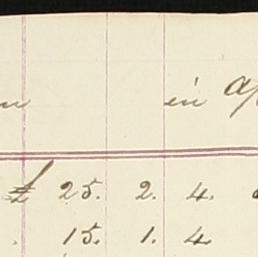 in
£ 25. 2. 4.
15. 1. 4